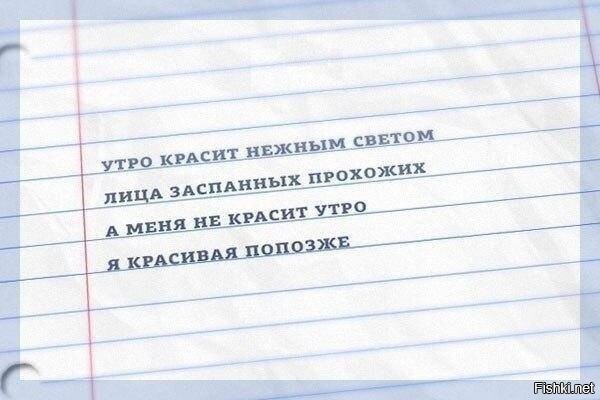 УТРО КРАСИТ НЕЖНЫМ СВЕТОМ
ЛИЦА ЗАСПАННЫХ ПРОХОЖИХ
А МЕНЯ НЕ КРАСИТ УТРО
Я КРАСИВАЯ ПОПОЗЖЕ
Fishki.net